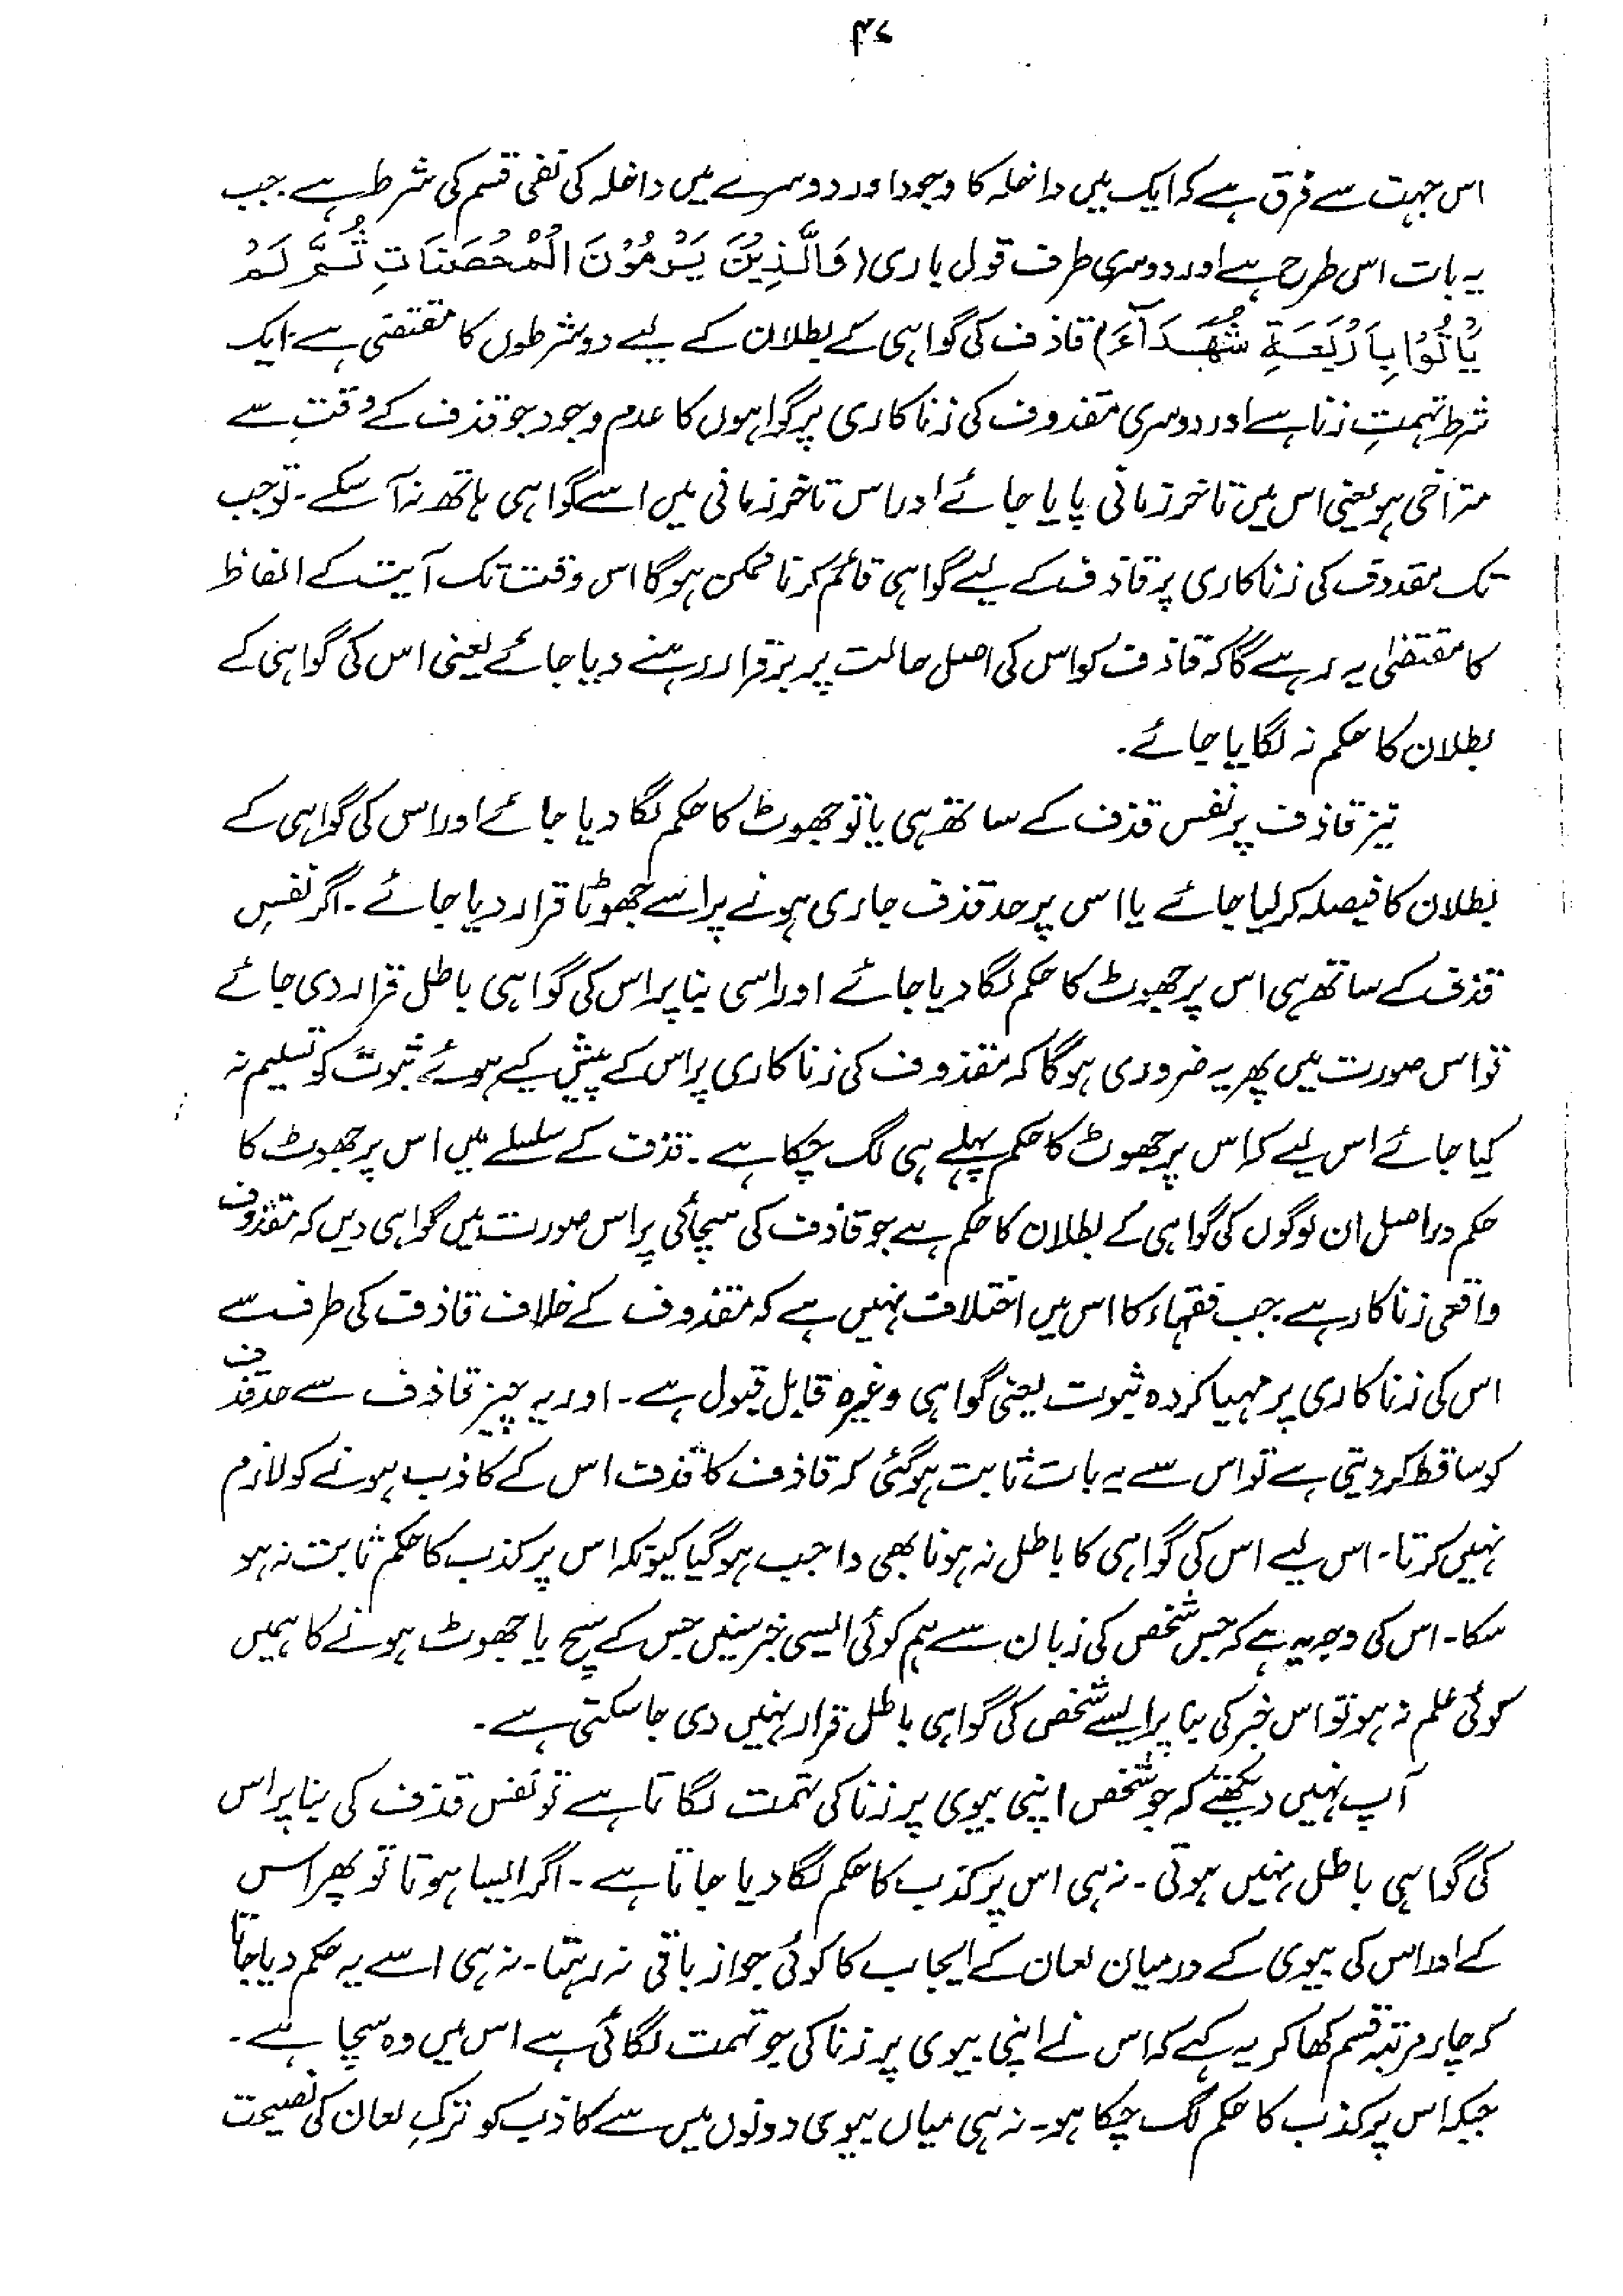 ۴۷
اس جہت سے فرق ہے کہ ایک میں داخلہ کا وجود اور دوسرے میں داخلہ کی نفی قسم کی شرط ہے جب
یہ بات اس طرح ہے اور دوسری طرف قول باری (وَالَّذِيْنَ يَرْمُوْنَ الْمُحْصَنَاتِ ثُمَّ لَمْ
يَأْتُوْا بِاَرْبَعَةِ شُهَدَآءَ) قاذف کی گواہی کے بطلان کے لیے دو شرطوں کا مقتضی ہے۔ ایک
شرط تہمتِ زنا ہے اور دوسری مقذوف کی زناکاری پر گواہوں کا عدم وجود جو قذف کے وقت سے
متراخی ہو یعنی اس میں تاخر زمانی پایا جائے اور اس تاخر زمانی میں اسے گواہی ہاتھ نہ آسکے۔ تو جب
تک مقذوف کی زناکاری پر قاذف کے لیے گواہی قائم کرنا ممکن ہوگا اس وقت تک آیت کے الفاظ
کا مقتضیٰ یہ رہے گا کہ قاذف کو اس کی اصل حالت پر برقرار رہنے دیا جائے یعنی اس کی گواہی کے
بطلان کا حکم نہ لگایا جائے۔
نیز قاذف پر نفس قذف کے ساتھ ہی یا تو جھوٹ کا حکم لگا دیا جائے اور اس کی گواہی کے
بطلان کا فیصلہ کر لیا جائے یا اس پر حد قذف جاری ہونے پر اسے جھوٹا قرار دیا جائے۔ اگر نفسِ
قذف کے ساتھ ہی اس پر جھوٹ کا حکم لگا دیا جائے اور اسی بنا پر اس کی گواہی باطل قرار دی جائے
تو اس صورت میں پھر یہ ضروری ہوگا کہ مقذوف کی زناکاری پر اس کے پیش کیے ہوئے ثبوت کو تسلیم نہ
کیا جائے اس لیے کہ اس پر جھوٹ کا حکم پہلے ہی لگ چکا ہے۔ قذف کے سلسلے میں اس پر جھوٹ کا
حکم دراصل ان لوگوں کی گواہی کے بطلان کا حکم ہے جو قاذف کی سچائی پر اس صورت میں گواہی دیں کہ مقذوف
واقعی زناکار ہے۔ جب فقہاء کا اس میں اختلاف نہیں ہے کہ مقذوف کے خلاف قاذف کی طرف سے
اس کی زناکاری پر مہیا کردہ ثبوت یعنی گواہی وغیرہ قابل قبول ہے۔ اور یہ چیز قاذف سے حد قذف
کو ساقط کر دیتی ہے تو اس سے یہ بات ثابت ہوگئی کہ قاذف کا قذف اس کے کاذب ہونے کو لازم
نہیں کرتا۔ اس لیے اس کی گواہی کا باطل نہ ہونا بھی واجب ہوگیا کیونکہ اس پر کذب کا حکم ثابت نہ ہو
سکا۔ اس کی وجہ یہ ہے کہ جس شخص کی زبان سے ہم کوئی ایسی خبر سنیں جس کے سچ یا جھوٹ ہونے کا ہمیں
کوئی علم نہ ہو تو اس خبر کی بنا پر ایسے شخص کی گواہی باطل قرار نہیں دی جا سکتی ہے۔
آپ نہیں دیکھتے کہ جو شخص اپنی بیوی پر زنا کی تہمت لگاتا ہے تو نفس قذف کی بنا پر اس
کی گواہی باطل نہیں ہوتی۔ نہ ہی اس پر کذب کا حکم لگا دیا جاتا ہے۔ اگر ایسا ہوتا تو پھر اس
کے اور اس کی بیوی کے درمیان لعان کے ایجاب کا کوئی جواز باقی نہ رہتا۔ نہ ہی اسے یہ حکم دیا جاتا
کہ چار مرتبہ قسم کھا کر یہ کہے کہ اس نے اپنی بیوی پر زنا کی جو تہمت لگائی ہے اس میں وہ سچا ہے۔
جبکہ اس پر کذب کا حکم لگ چکا ہو۔ نہ ہی میاں بیوی دونوں میں سے کاذب کو ترکِ لعان کی نصیحت